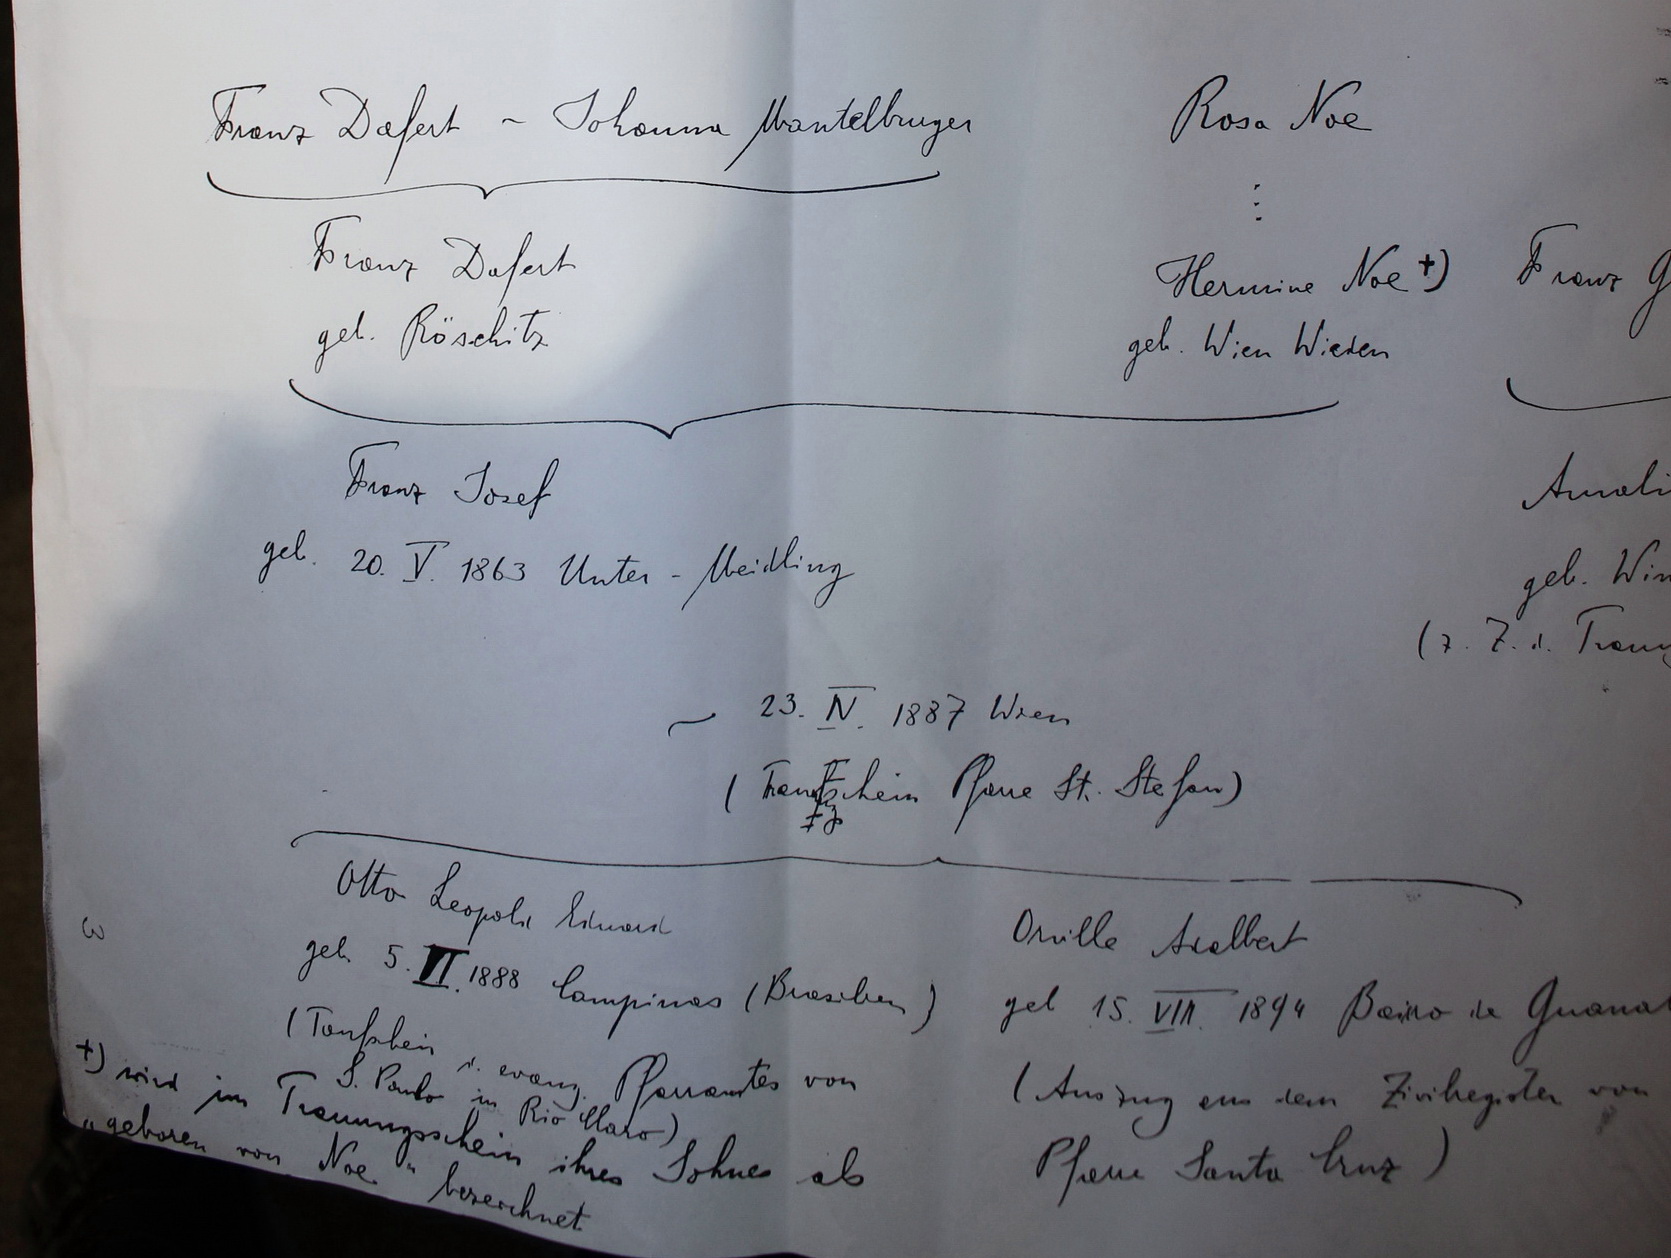 Franz Dafert ~ Johanna Mantelburger
Rosa Noe
Franz Dafert
geb. Röschitz
Hermine Noe +)
geb. Wien Wieden
Franz
Franz Josef
geb. 20. V. 1863 Unter-Meidling
geb.
(z. Z. d.
~ 23. IV. 1887 Wien
(Pfarre St. Stefan)
Otto Leopold Eduard
geb. 5. VI. 1888 Campinas (Brasilien)
(Taufschein d. evang. Pfarramtes von
S. Paulo in Rio Claro)
Orville Adalbert
geb 15. VIII. 1894 Bairro de
(Auszug aus dem Zivilregister von
Pfarre Santa Cruz)
+) wird im Trauungsschein ihres Sohnes als
"geboren von Noe" bezeichnet